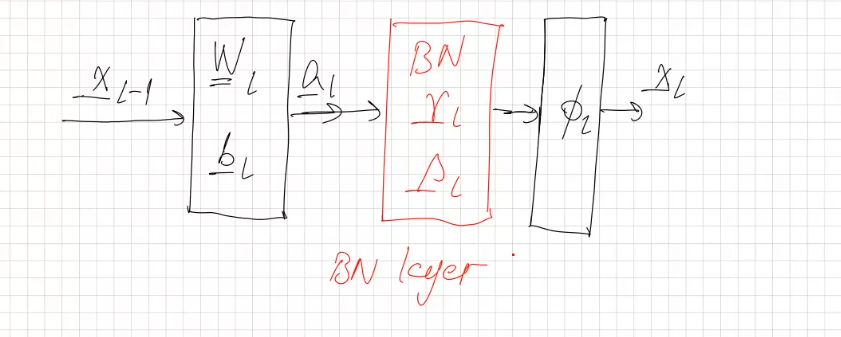 x_{l-1}
W_l
b_l
a_l
BN
γ_l
β_l
ϕ_l
x_l
BN layer